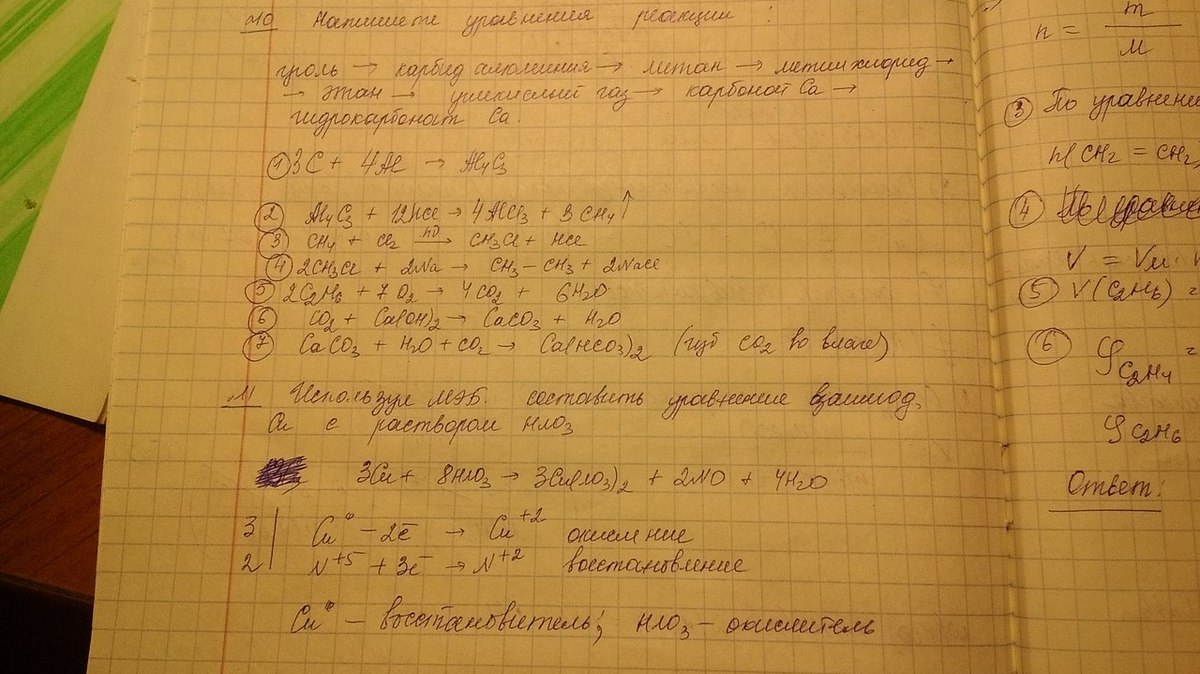 №10 Напишите уравнения реакции:
уголь → карбид алюминия → метан → метилхлорид →
→ этан → углекислый газ → карбонат Ca →
гидрокарбонат Ca.
① 3C + 4Al → Al₄C₃
② Al₄C₃ + 12HCl → 4AlCl₃ + 3CH₄↑
③ CH₄ + Cl₂ → CH₃Cl + HCl
④ 2CH₃Cl + 2Na → CH₃–CH₃ + 2NaCl
⑤ 2C₂H₆ + 7O₂ → 4CO₂ + 6H₂O
⑥ CO₂ + Ca(OH)₂ → CaCO₃ + H₂O
⑦ CaCO₃ + H₂O + CO₂ → Ca(HCO₃)₂ (изб CO₂ во влаге)
№11 Используя МЭБ. составить уравнение взаимод.
Cu с раствором HNO₃
3Cu + 8HNO₃ → 3Cu(NO₃)₂ + 2NO + 4H₂O
3 | Cu⁰ – 2ē → Cu⁺² окисление
2 | N⁺⁵ + 3ē → N⁺² восстановление
Cu⁰ – восстановитель; HNO₃ – окислитель
n = m/M
③ По уравнению
n(CH₂ = CH₂)
④
V = Vм ·
⑤ V(C₂H₆) =
⑥ φ C₂H₄ =
φ C₂H₆
Ответ: